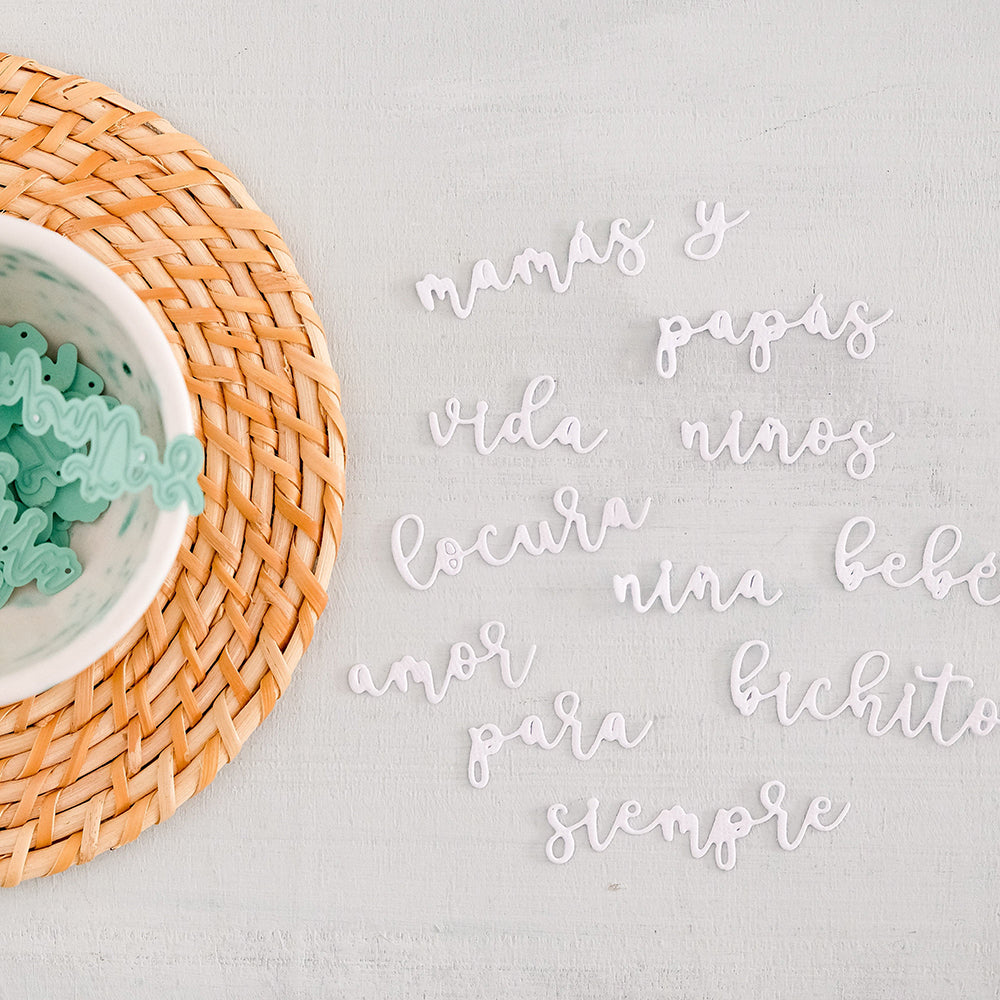 mamás y
papás
vida
ninos
locura
nina
bebé
amor
bichito
para
siempre